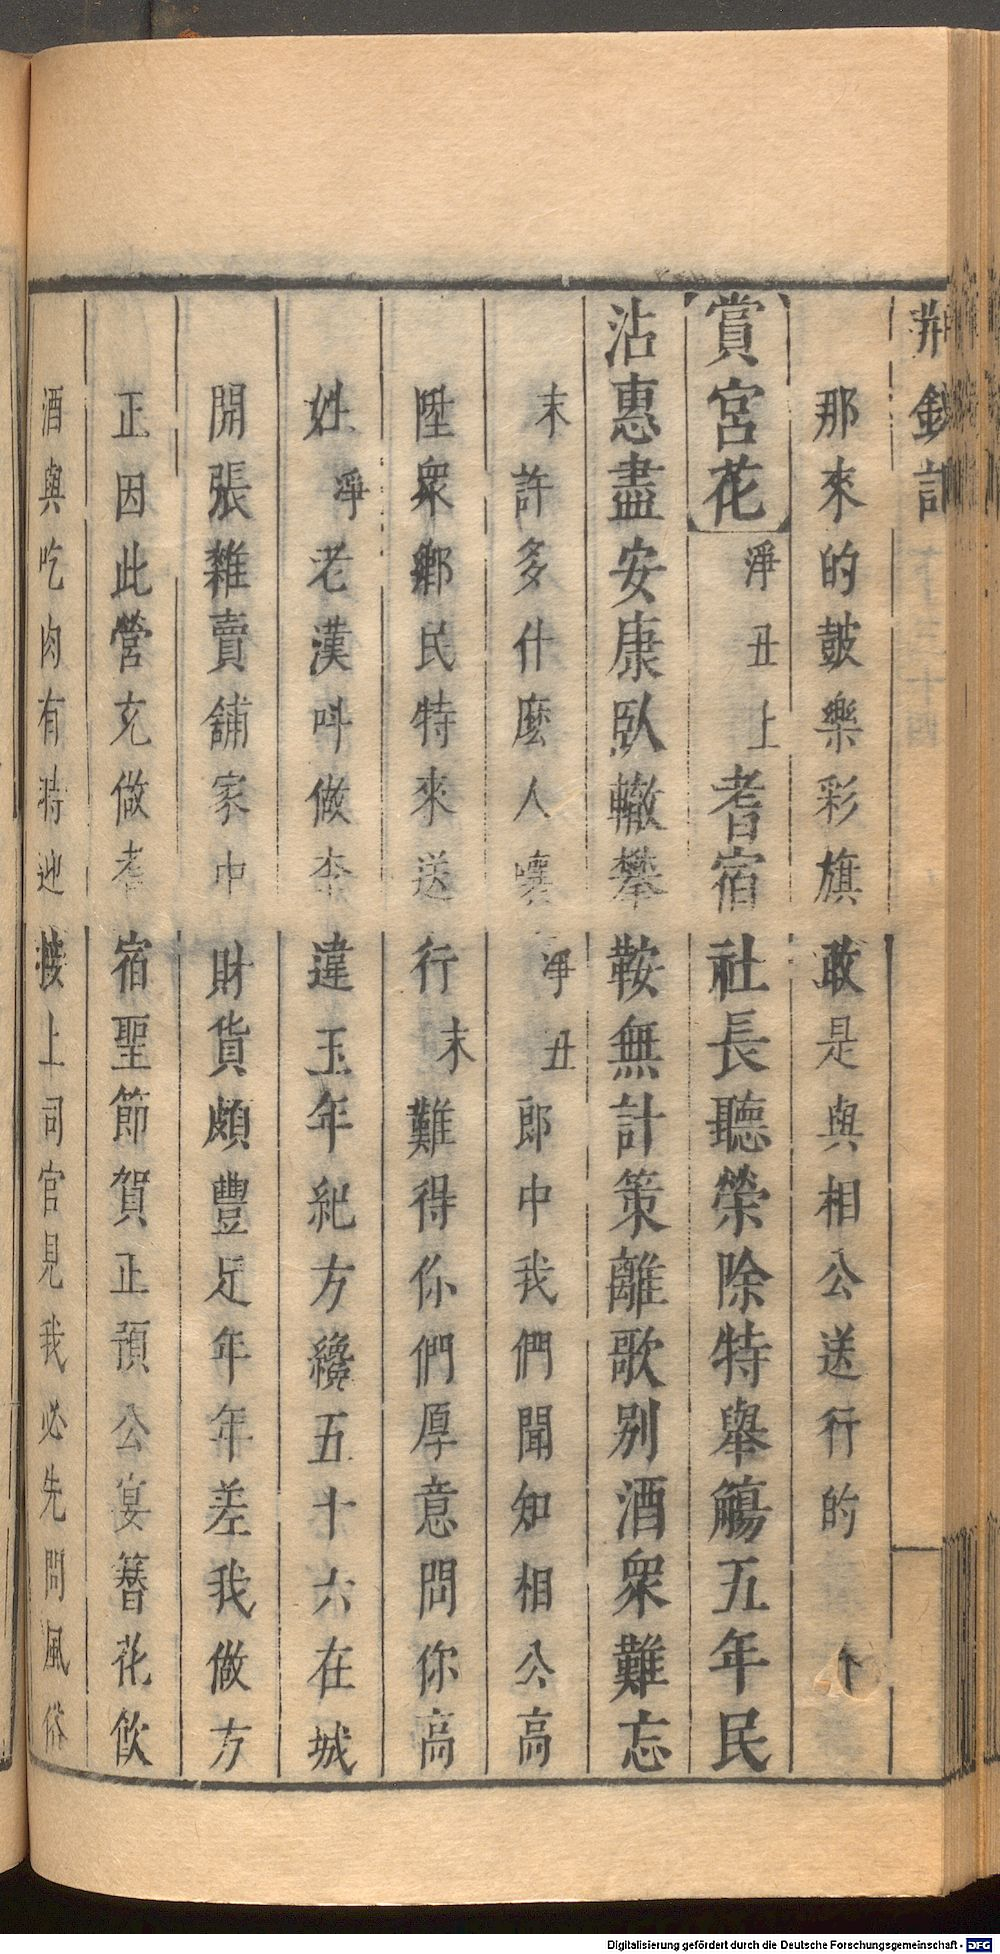 荆釵記
那來的皷樂彩旗敢是與相公送行的 个
【賞宮花】淨丑上耆宿社長聽榮除特舉觴五年民
沾惠盡安康臥轍攀鞍無計策離歌别酒衆難忘
末許多什麽人嚷淨丑郎中我們聞知相公高
陞衆鄉民特來送行末難得你們厚意問你高
姓淨老漢呌做李違玉年紀方纔五十六在城
開張雜賣舖家中財貨頗豐足年年差我做方
正因此營充做耆宿聖節賀正預公宴簪花飲
酒與吃肉有時迎接上司官見我必先問風俗
Digitalisierung gefördert durch die Deutsche Forschungsgemeinschaft - DFG